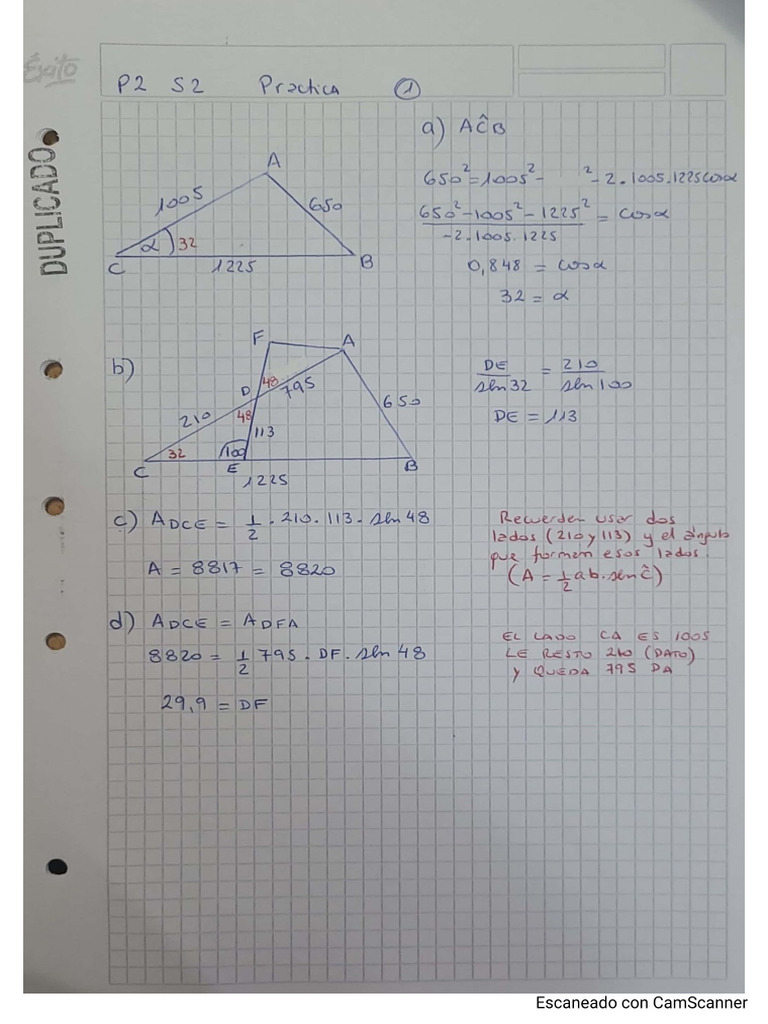 Éxito
DUPLICADO
P2 S2 Practica ①
a) AĈB
A
1005
650
α 32
C
1225
B
650² = 1005² - ² - 2.1005.1225cosα
650² - 1005² - 1225² / -2.1005.1225 = cosα
0,848 = cosα
32 = α
b)
F
A
D
48
795
210
48
650
113
32
100
C
E
B
1225
DE / sen 32 = 210 / sen 100
DE = 113
c) A DCE = 1/2 . 210. 113. sen 48
A = 8817 = 8820
Recuerden usar dos
lados (210 y 113) y el ángulo
que forman esos lados.
(A = 1/2 ab.sen ĉ)
d) A DCE = A DFA
8820 = 1/2 795. DF. sen 48
29,9 = DF
EL LADO CA ES 1005
LE RESTO 210 (DATO)
Y QUEDA 795 DA
Escaneado con CamScanner